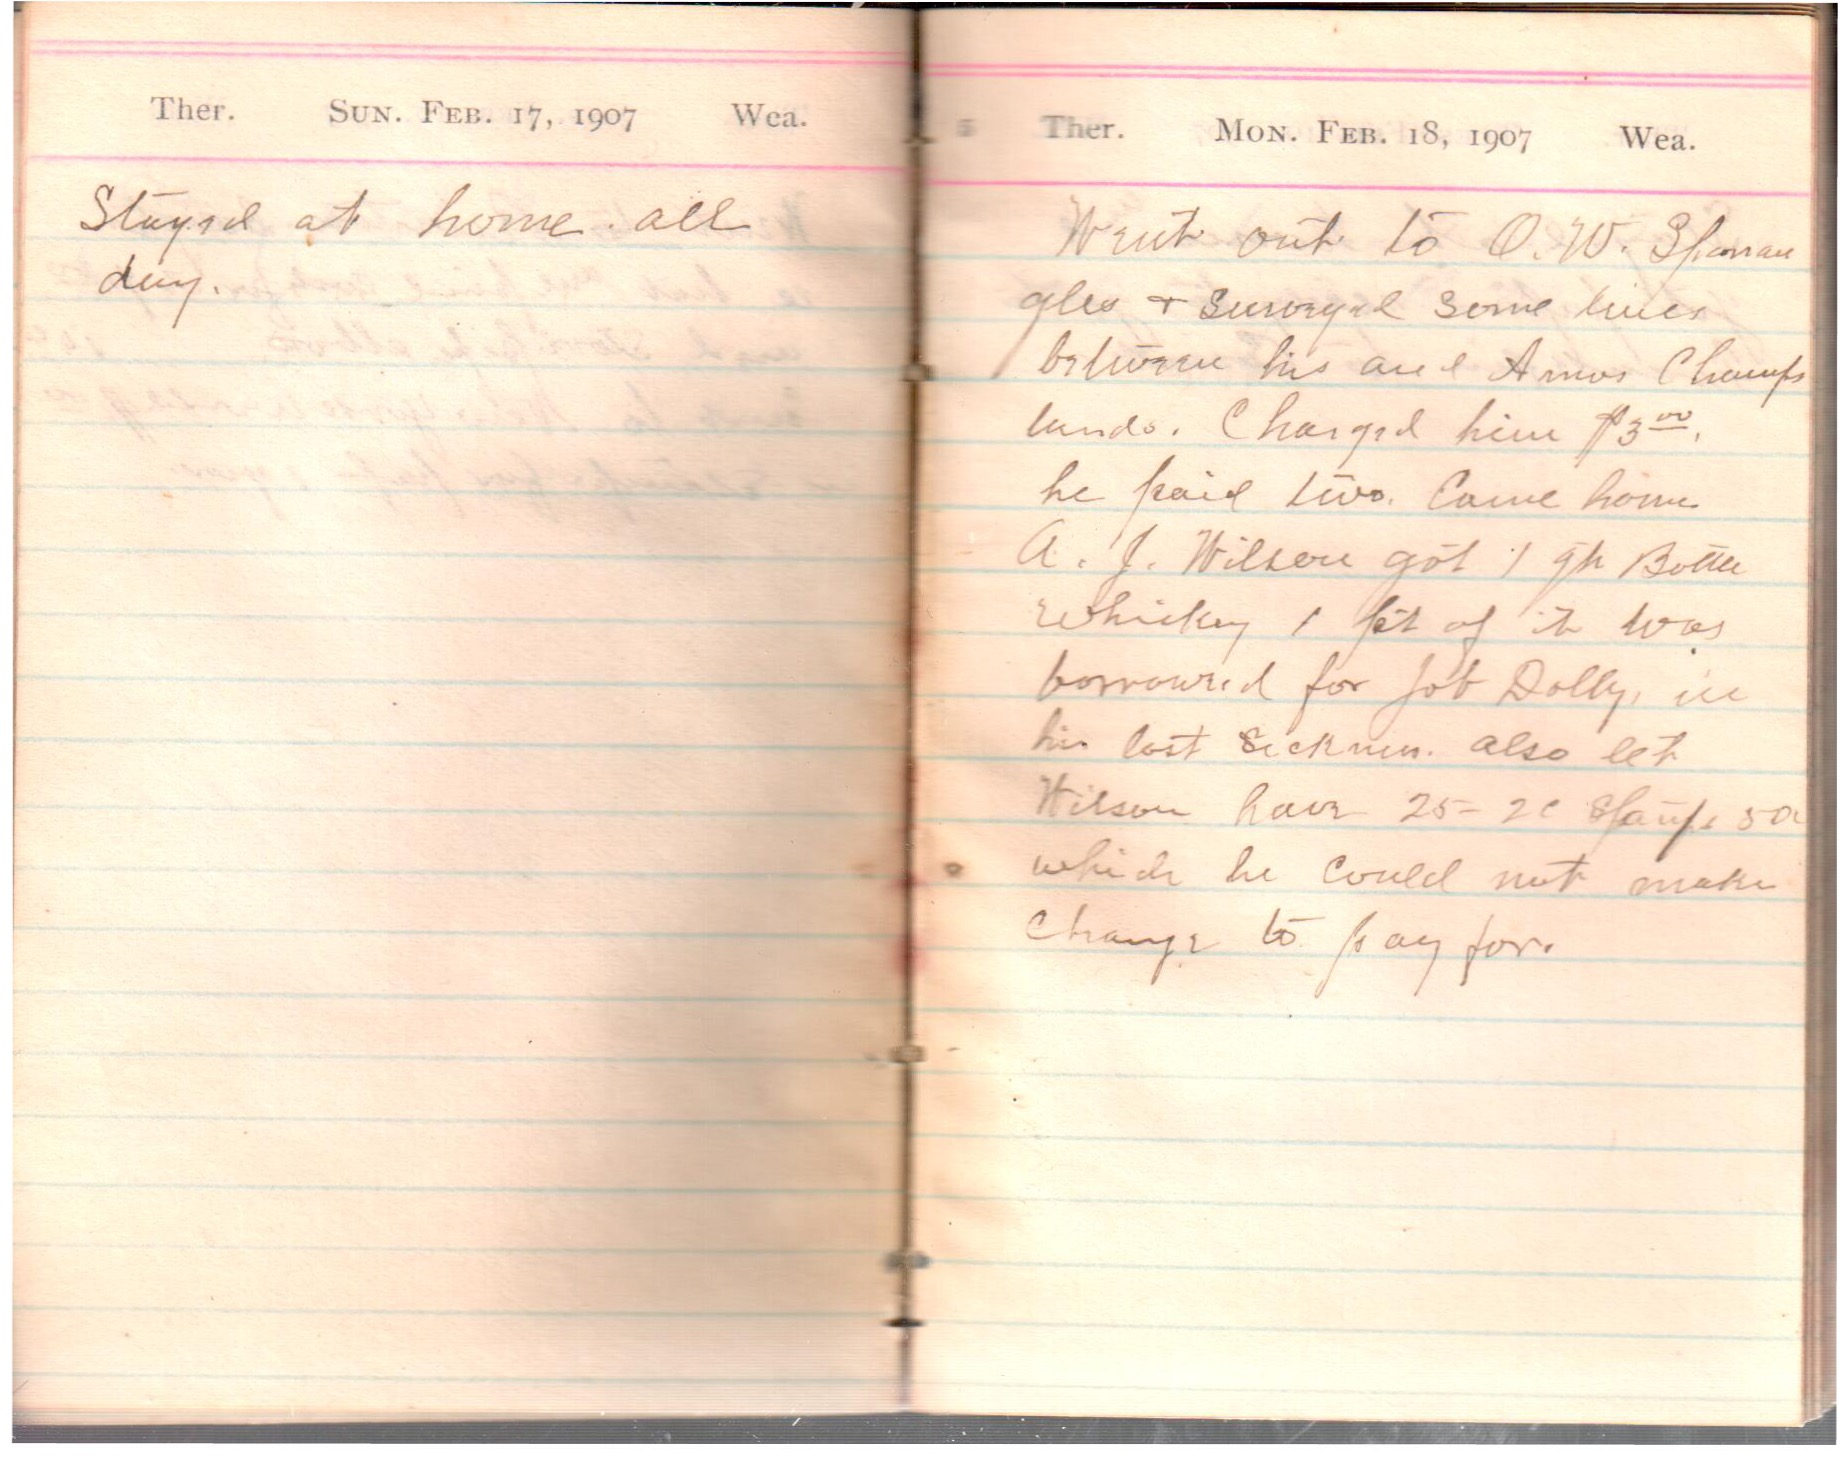 Ther. Sun. Feb. 17, 1907 Wea.
Stayed at home all
day.
Ther. Mon. Feb. 18, 1907 Wea.
Went out to O. W.
gles & surveyed some lines
between his and Amos Champs
lands. Charged him $3.00.
he paid two. Came home
A. J. Wilson got 1 qt Bottle
Whiskey 1 pt of it was
borrowed for Job Dolly, in
his last sickness. also let
Wilson have 25 - 2c Stamps
which he could not make
change to pay for.